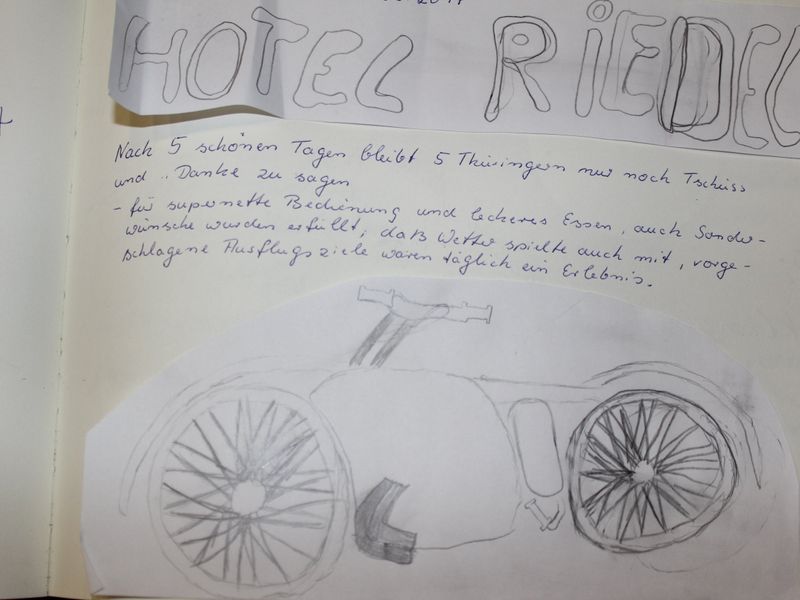 HOTEL RiEDEL
Nach 5 schönen Tagen bleibt 5 Thüringern nur noch Tschüss
und .. Danke zu sagen
- für supernette Bedienung und leckeres Essen, auch Sonder-
wünsche wurden erfüllt, daß Wetter spielte auch mit, vorge-
schlagene Ausflugsziele waren täglich ein Erlebnis.